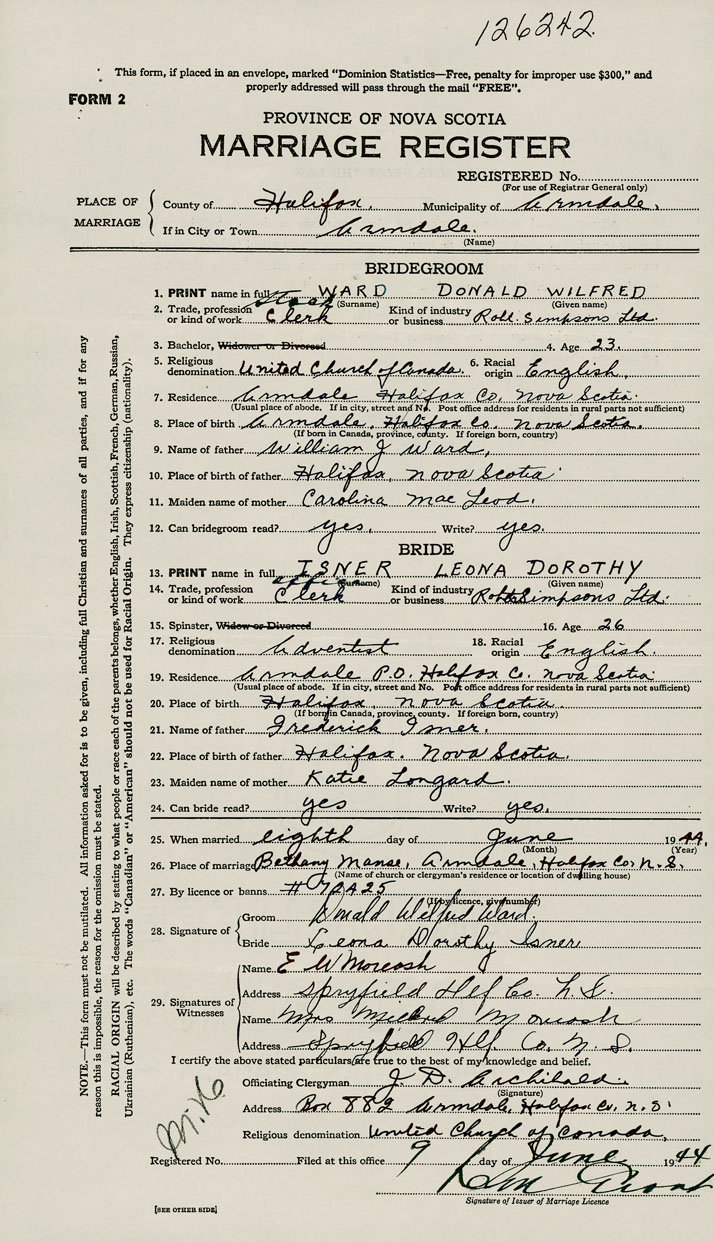 126242.
This form, if placed in an envelope, marked "Dominion Statistics—Free, penalty for improper use $300," and
properly addressed will pass through the mail "FREE".
FORM 2
PROVINCE OF NOVA SCOTIA
MARRIAGE REGISTER
REGISTERED No.
(For use of Registrar General only)
PLACE OF MARRIAGE
County of Halifax, Municipality of Armdale,
If in City or Town Armdale.
(Name)
BRIDEGROOM
1. PRINT name in full WARD DONALD WILFRED
(Surname) (Given name)
2. Trade, profession or kind of work Stock Clerk Kind of industry or business Robt. Simpsons Ltd.
3. Bachelor, Widower or Divorced 4. Age 23.
5. Religious denomination United Church of Canada. 6. Racial origin English.
7. Residence Armdale Halifax Co, Nova Scotia.
(Usual place of abode. If in city, street and No. Post office address for residents in rural parts not sufficient)
8. Place of birth Armdale, Halifax Co. Nova Scotia.
(If born in Canada, province, county. If foreign born, country)
9. Name of father William J Ward,
10. Place of birth of father Halifax, Nova Scotia
11. Maiden name of mother Carolina Mac Leod.
12. Can bridegroom read? yes. Write? yes.
BRIDE
13. PRINT name in full ISNER LEONA DOROTHY
(Surname) (Given name)
14. Trade, profession or kind of work office Clerk Kind of industry or business Robt Simpsons Ltd.
15. Spinster, Widow or Divorced 16. Age 26
17. Religious denomination Adventist 18. Racial origin English.
19. Residence Armdale P.O. Halifax Co. Nova Scotia
(Usual place of abode. If in city, street and No. Post office address for residents in rural parts not sufficient)
20. Place of birth Halifax, Nova Scotia.
(If born in Canada, province, county. If foreign born, country)
21. Name of father Frederick Isner.
22. Place of birth of father Halifax. Nova Scotia.
23. Maiden name of mother Katie Longard.
24. Can bride read? yes Write? yes.
25. When married eighth day of June 1944.
(Month) (Year)
26. Place of marriage Bethany Manse, Armdale, Halifax Co, N.S.
(Name of church or clergyman's residence or location of dwelling house)
27. By licence or banns # 72425
(If by licence, give number)
28. Signature of
Groom Donald Wilfred Ward.
Bride Leona Dorothy Isner
29. Signatures of Witnesses
Name E W
Address Spryfield Hlf Co. N.S.
Name Mrs Mildred
Address Spryfield Hlf Co. N.S.
I certify the above stated particulars are true to the best of my knowledge and belief.
Officiating Clergyman J. D. Archibald.
(Signature)
Address Box 882 Armdale, Halifax Co. N.S.
Religious denomination United Church of Canada,
Registered No. Filed at this office 9 day of June 1944
Signature of Issuer of Marriage Licence
[SEE OTHER SIDE]
NOTE.—This form must not be mutilated. All information asked for is to be given, including full Christian and surnames of all parties, and if for any
reason this is impossible, the reason for the omission must be stated.
RACIAL ORIGIN will be described by stating to what people or race each of the parents belongs, whether English, Irish, Scottish, French, German, Russian,
Ukrainian (Ruthenian), etc. The words "Canadian" or "American" should not be used for Racial Origin. They express citizenship (nationality).